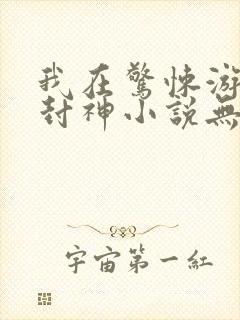 我在驚悚游
封神小説無
宇宙第一紅